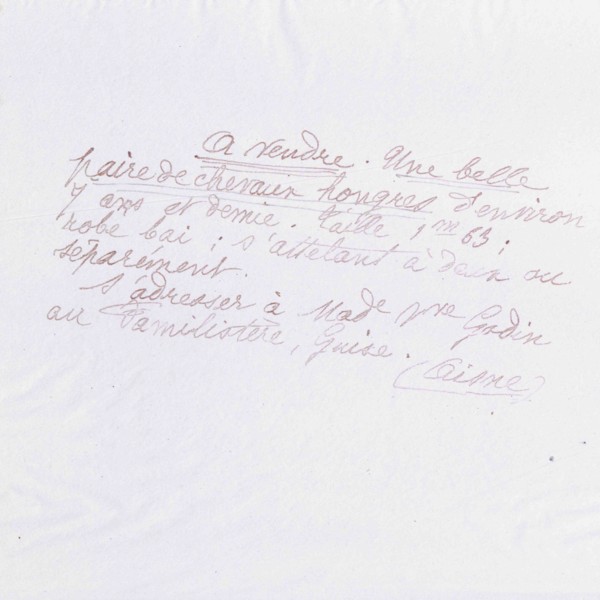 A vendre. Une belle
paire de chevaux hongres d'environ
7 ans et demie. Taille 1m 63;
robe bai; s'attelant à deux ou
séparement.
S'adresser à Made Vve Godin
au Familistère, Guise.
(Aisne)